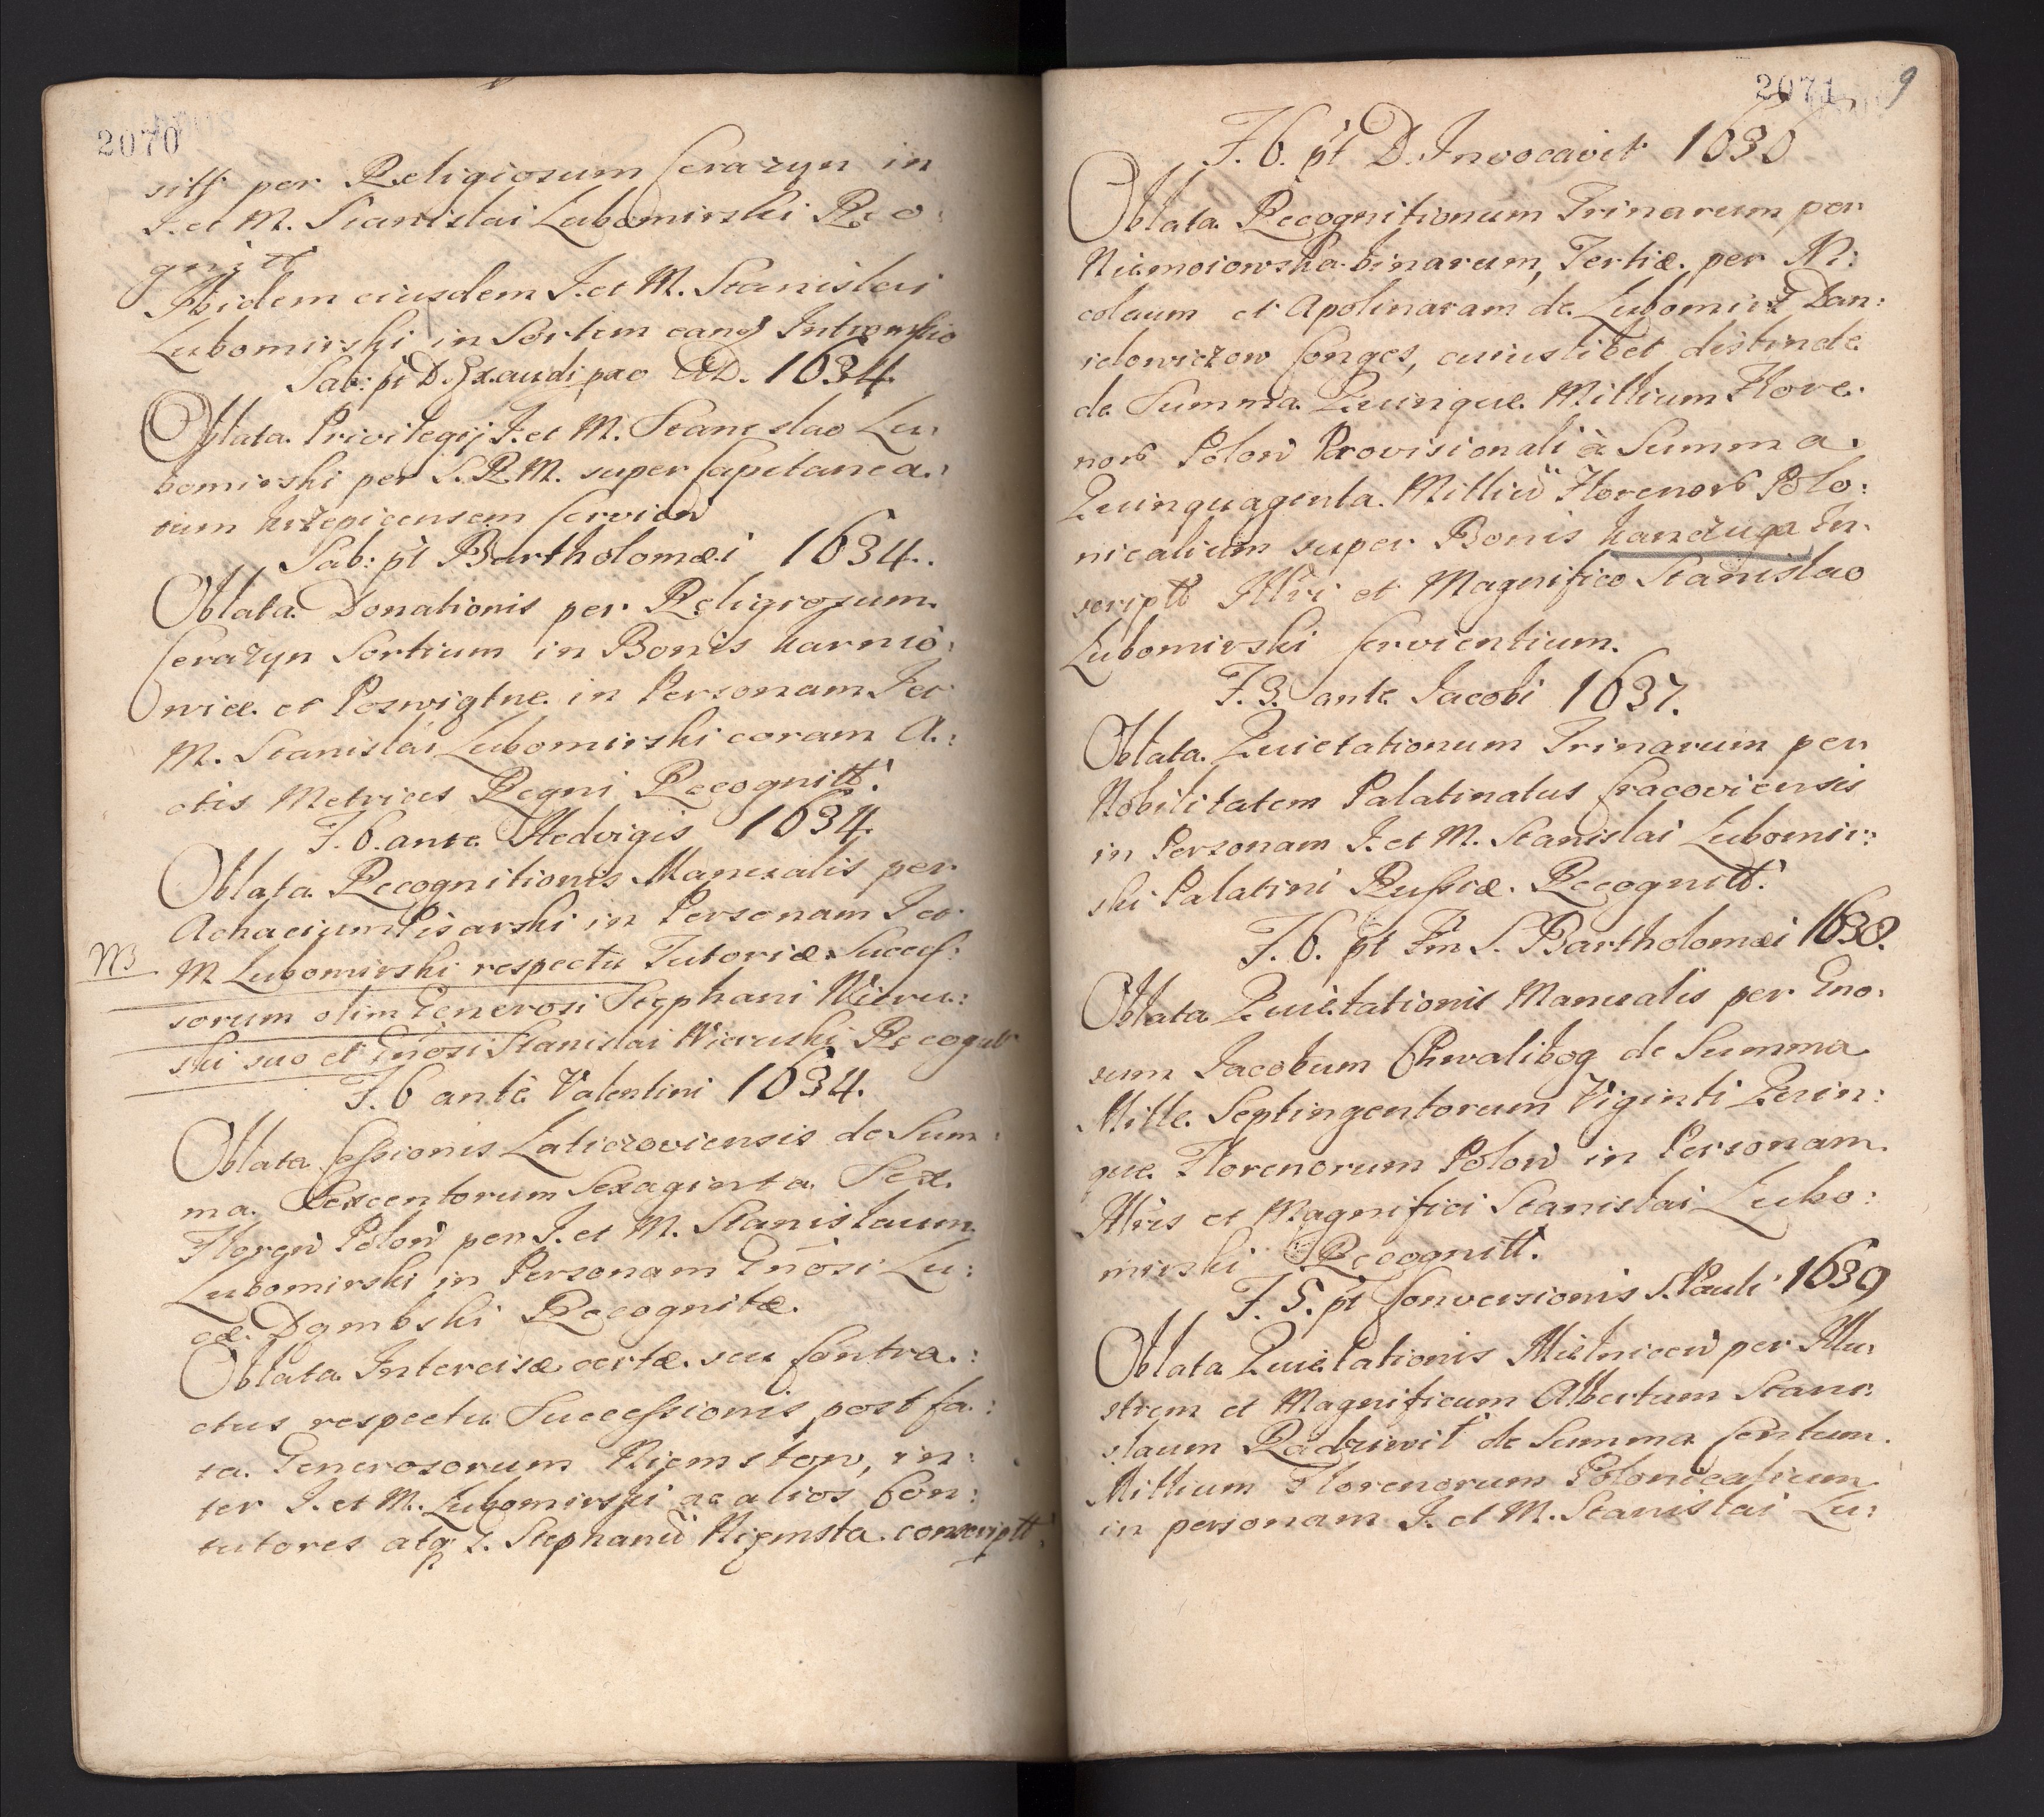 2070
sitt per Religiosum Cerazyn in
I. et M. Stanislai Lubomirski Reco:
gnitt
Ibidem eiusdem I. et M. Stanislai
Lubomirski in Sortem eand Intromissio
Sab: pt D. Exaudi pxo AD. 1634.
Oblata Privilegij I. et M. Stanislao Lu:
bomirski per S. R. M. super Capitanea:
tum krzepicensem Servien
Sab: pt Bartholomæi 1634.
Oblata Donationis per Religiosum
Cerazyn Sortium in Bonis karnio:
wice et Poswigtne in Personam I et
M. Stanislai Lubomirski coram A:
ctis Metrices Regni Recognitt.
F. 6. ante Hedvigis 1634.
Oblata Recognitionis Manualis per
Achacium Pisarski in Personam I et
NB
M. Lubomirski respectu Tutoriæ Succes:
sorum olim Generosi Stephani Wieru:
ski suo et Gnosi Stanislai Wieruski Recognit
F. 6 ante Valentini 1634.
Oblata Cessionis Laticzoviensis de Sum:
ma Sexcentorum Sexaginta Sex
Floren Polon per I. et M. Stanislaum
Lubomirski in Personam Gnosi Lu:
cæ Dgmbski Recognitæ.
Oblata Intercisæ certæ seu Contra:
ctus respectu Successionis post fa:
ta Generosorum Niemstow, in:
ter I. et M. Lubomirski ac alios Con:
tutores atq G. Stephanu Niemsta conscriptt
2071
9
F. 6. pt D. Invocavit 1636
Oblata Recognitionum Trinarum per
Niemoiowska binarum, Tertiæ per Ni:
colaum et Apolinaram de Lubomirz Dan:
idowiczow Conges, cuiuslibet distincte
de Summa Quinque Millium Flore
nor Polon Provisionali à Summa
Quinquagenta Milliu Florenor Polo:
nicalium super Bonis kanczuga In:
scriptt Illri et Magnifico Stanislao
Lubomirski Servientium.
F. 3. ante Iacobi 1637.
Oblata Quietationum Trinarum per
Nobilitatem Palatinatus Cracoviensis
in Personam I. et M. Stanislai Lubomir:
ski Palatini Russiæ Recognitt.
F. 6. pt Fm S. Bartholomæi 1638.
Oblata Quietationis Manualis per Gno:
sum Iacobum Chwalibog de Summa
Mille Septingentorum Viginti Quin:
que Florenorum Polon in Personam
Illris et Magnifici Stanislai Lubo:
mirski Recognitt.
F. 5. pt Conversionis S. Pauli 1639
Oblata Quietationis Mielnicen per Illu:
strem et Magnificum Albertum Stani:
slaum Radziwil de Summa Centum
Millium Florenorum Polonicalium
in personam I. et M. Stanislai Lu: